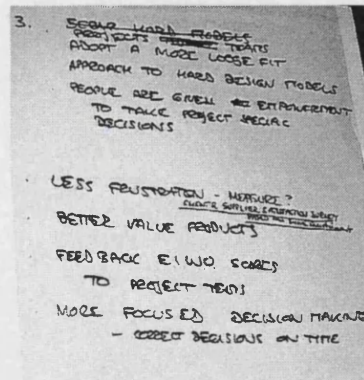 3. SEGAR HARD MODELS
PROJECTS TEAMS
ADOPT A MORE LOOSE FIT
APPROACH TO HARD DESIGN MODELS
PEOPLE ARE GIVEN EMPOWERMENT
TO TAKE PROJECT SPECIFIC
DECISIONS
LESS FRUSTRATION - MEASURE?
SUPPLIER SURVEY
BETTER VALUE PRODUCTS
FEEDBACK SCORES
TO PROJECT TEAMS
MORE FOCUSED DECISION MAKING
- CORRECT DECISIONS ON TIME